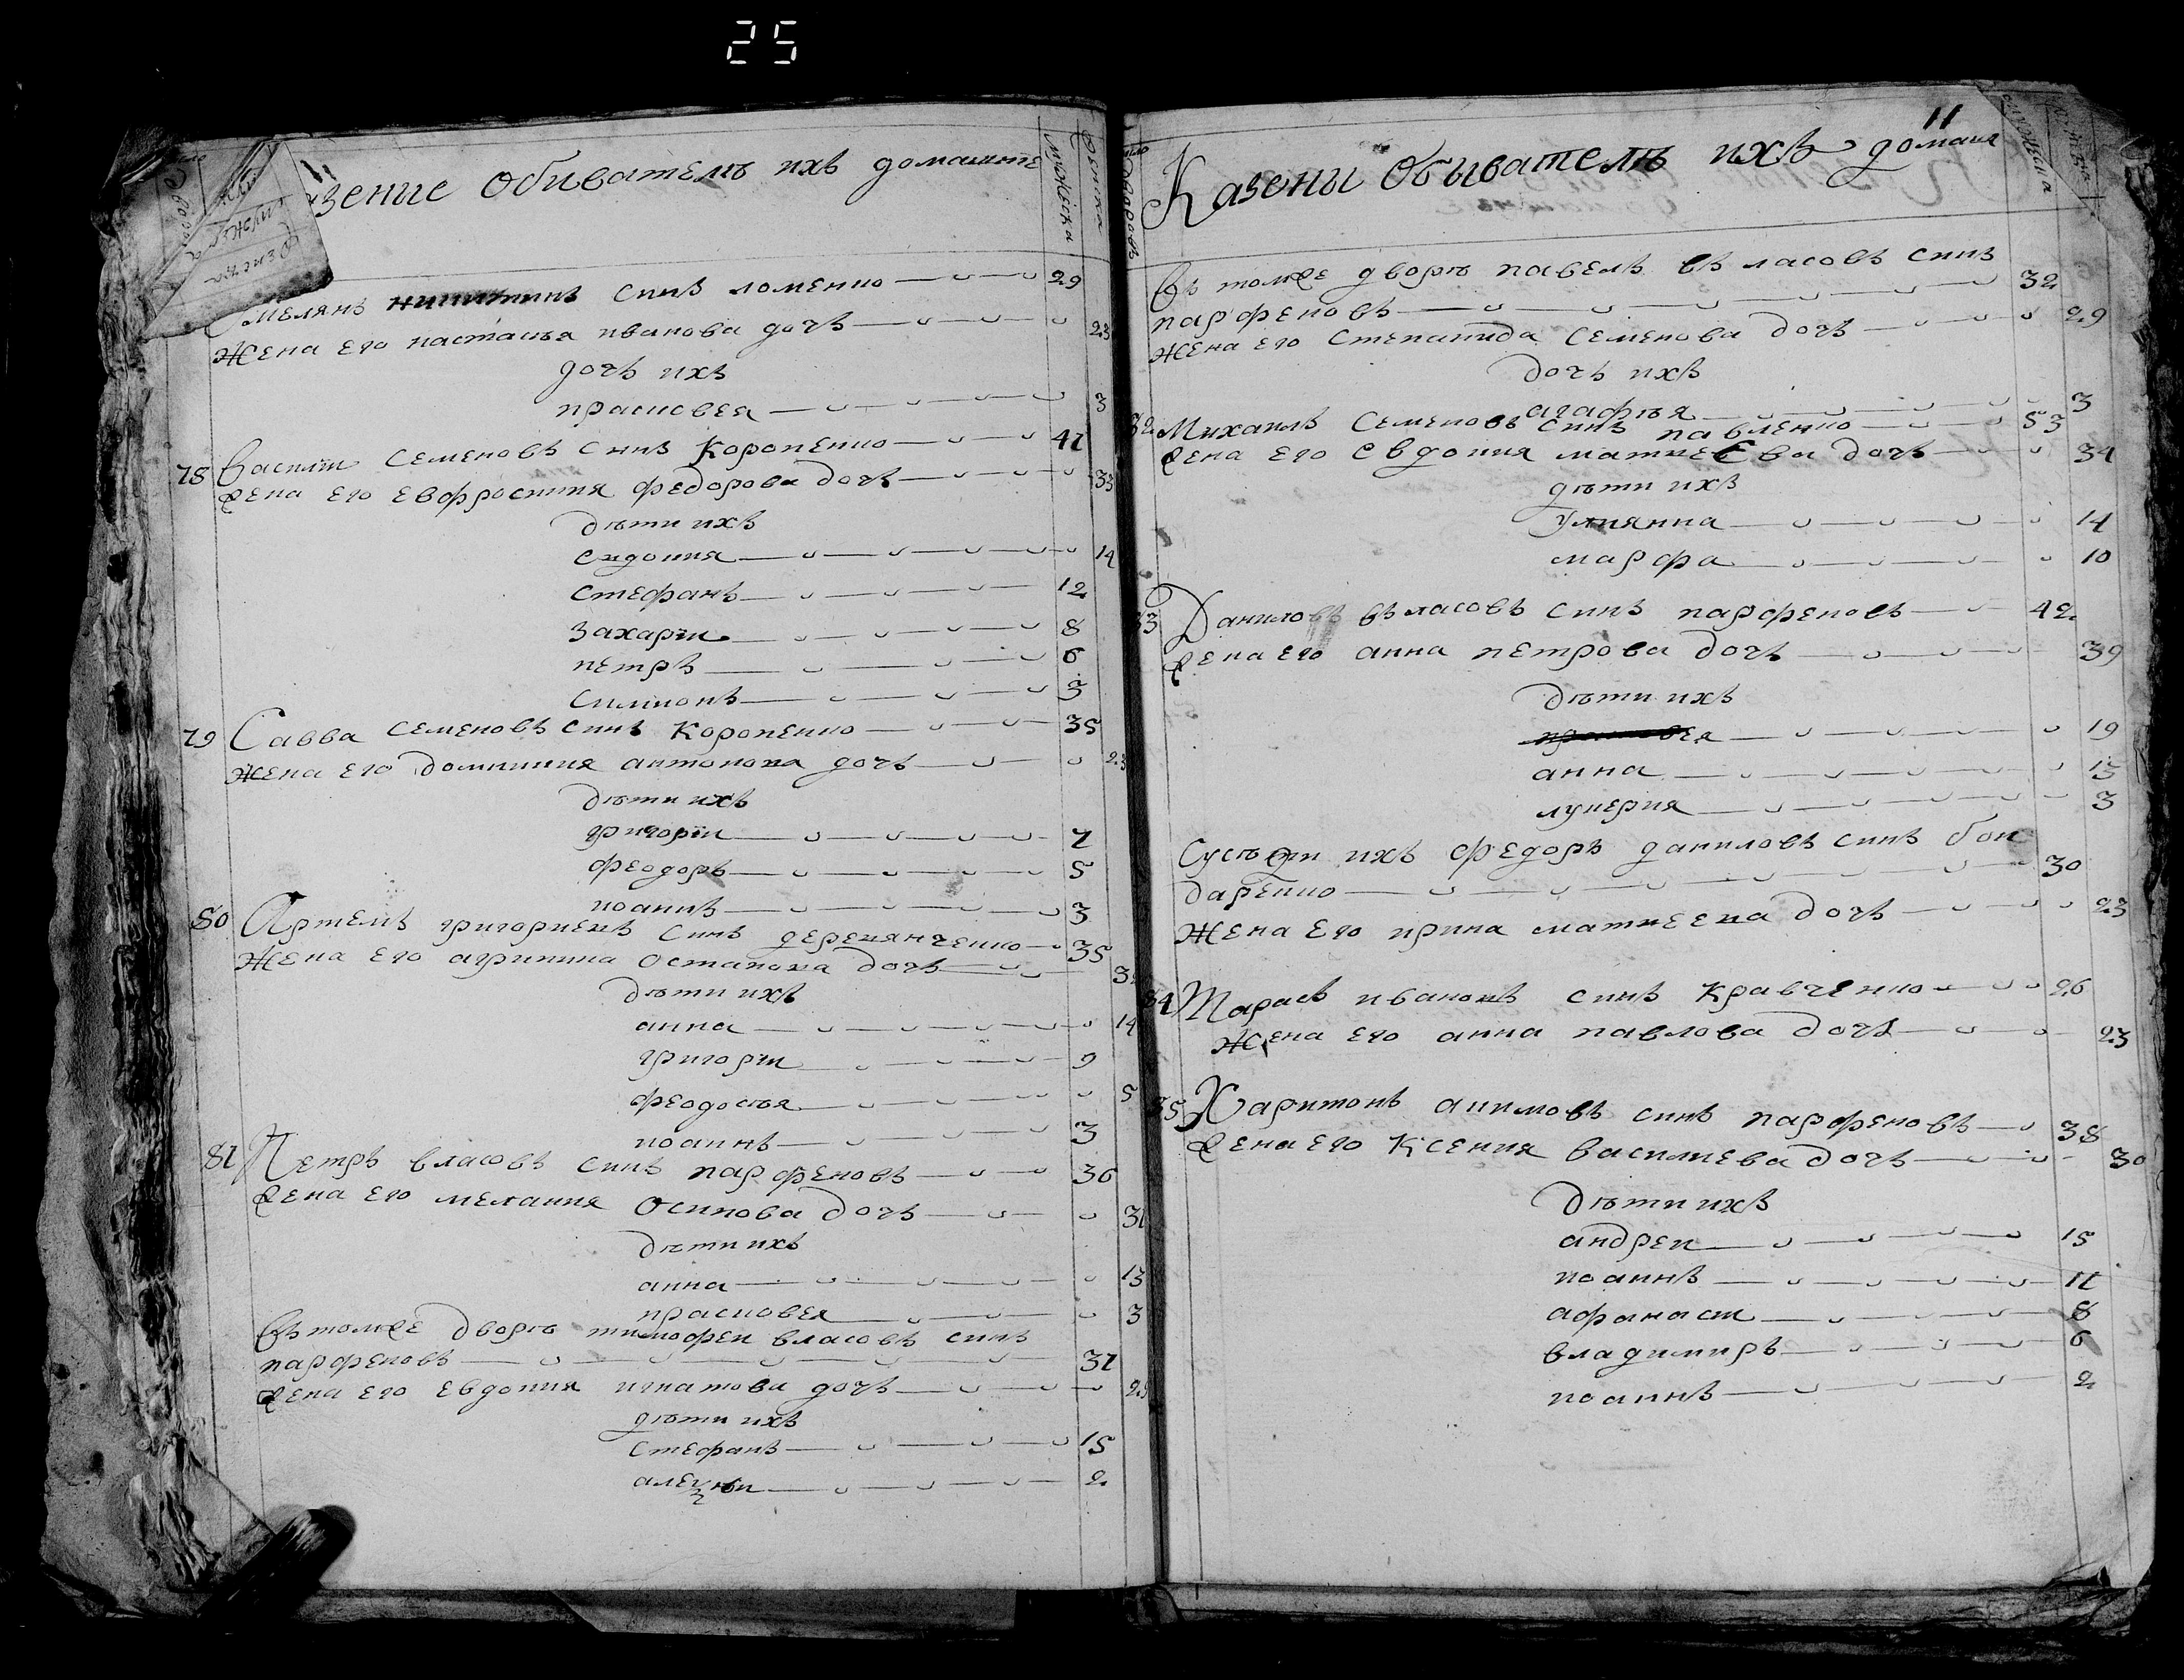 25
азение обиватель ихъ домашнїе
мужеска
женска
мелянъ никитинъ синъ ломенко 29
жена его настасъя иванова дочъ 23
дочъ ихъ
прасковея 3
78 василїи семеновъ синъ коропенко 41
жена его евфросиния федорова дочъ 33
дѣти ихъ
евдокия 14
стефанъ 12
захарїи 8
петръ 6
симионъ 3
79 Савва семеновъ синъ коропенко 35
жена его домникия антонова дочъ 23
дѣти ихъ
григорїи 7
феодоръ 5
иоаннъ 3
80 Артемъ григориевъ синъ деревянченко 35
жена его агрипина остапова дочъ
дѣти ихъ
анна 14
григорїи 9
феодосѣя 5
иоаннъ 3
81 Петръ власовъ синъ парфеновъ 36
жена его мелания осипова дочъ 31
дѣти ихъ
анна 13
прасковея 3
въ томже дворѣ тимофеи власовъ синъ
парфеновъ 37
жена его евдокия игнатова дочъ
дѣти ихъ
стефанъ 15
алеѯѣи 2
11
Казени обыватель ихъ домаш
дворовъ
мужеска
въ томже дворѣ павелъ въласовъ синъ
парфеновъ 32
жена его степанида семенова дочъ 29
дочъ ихъ
агафѣя 3
82 Михаилъ семеновъ синъ павленко 53
жена его евдокия матиеева дочъ 34
дѣти ихъ
улиянна 14
марфа 10
83 Даниловъ въласовъ синъ парфеновъ 42
жена его анна петрова дочъ 39
дѣти ихъ
19
анна 15
лукерия 3
Сусѣди ихъ федоръ даниловъ синъ бон
даренко 30
жена его ирина матиеева дочъ 23
84 Тарасъ ивановъ синъ кравченко 26
жена его анна павлова дочъ 23
85 Харитонъ акимовъ синъ парфеновъ 38
жена его ксения василиева дочъ 30
дѣти ихъ
андреи 15
иоаннъ 11
афанасїи 8
владимиръ 6
иоаннъ 2